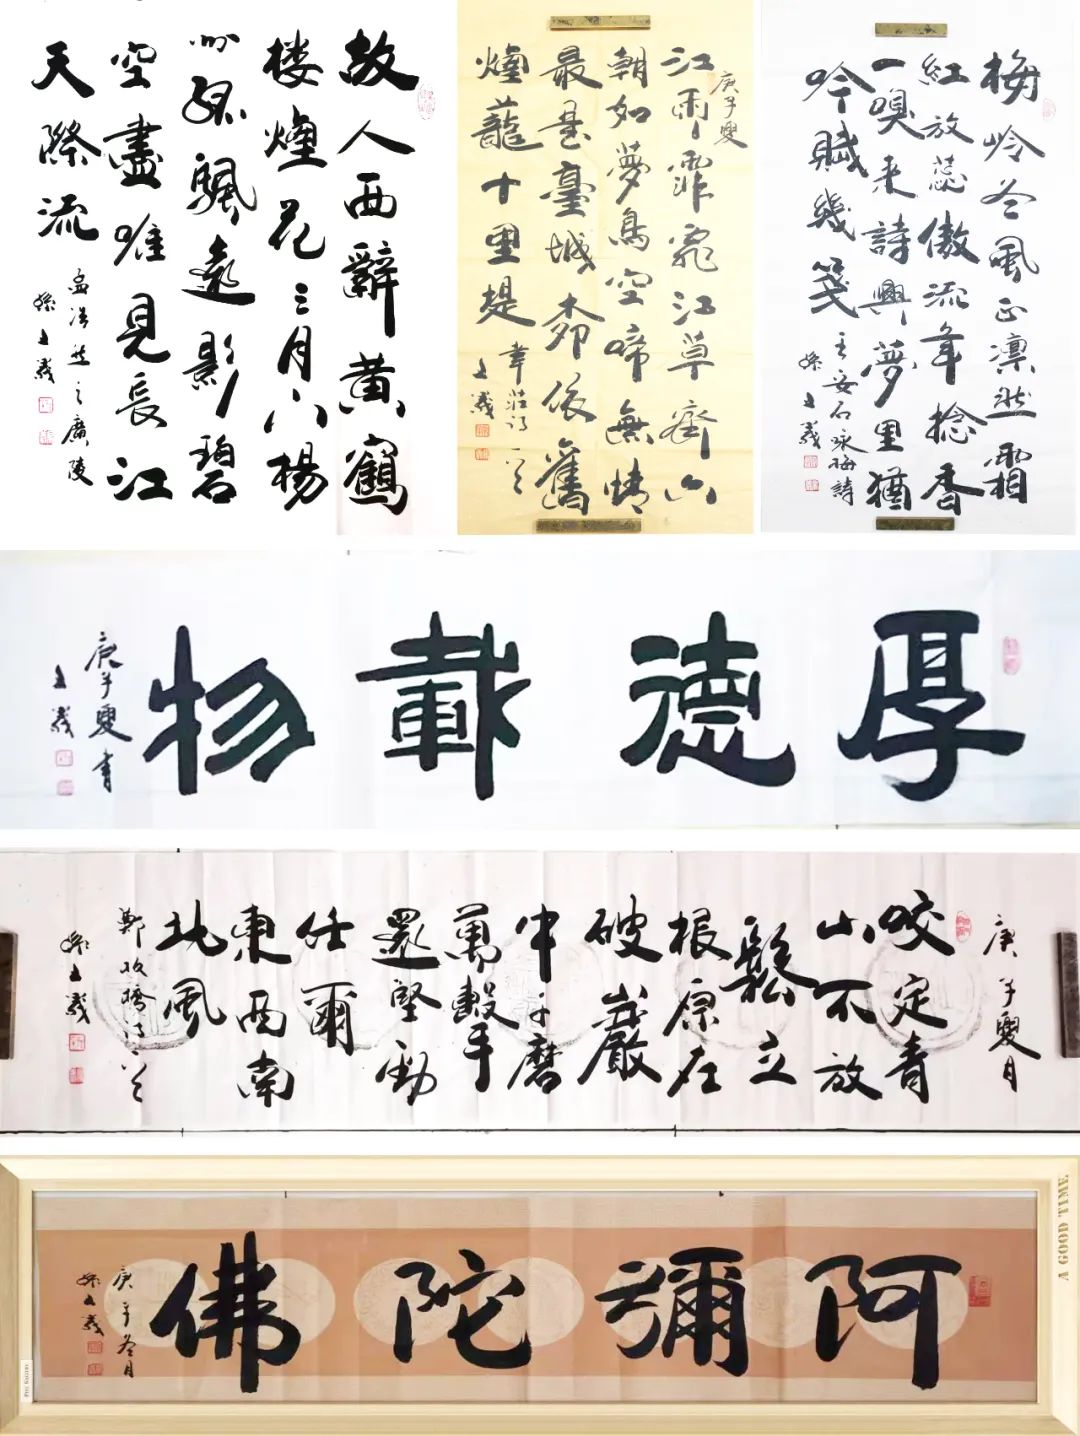 故人西辭黄鶴
楼煙花三月下楊
州孤颿遠影碧
空盡唯見長江
天際流
孟浩然之廣陵
孫義
庚子夏
江雨霏霏江草齊六
朝如夢鳥空啼無情
最是臺城柳依舊
煙蘢十里堤
韋莊詩一首
義
梅岭冬風正凛然霜
紅放蕊傲流年捻香
一嗅来詩興夢里猶
吟賦幾箋
王安石咏梅詩
孫義
厚德載物
庚子夏書
義
庚子夏月
咬定青
山不放
鬆立
根原在
破巖
中千磨
萬擊
還堅勁
任爾
東西南
北風
鄭板橋詩一首
孫義
阿彌陀佛
庚子冬月
孫義
A GOOD TIME